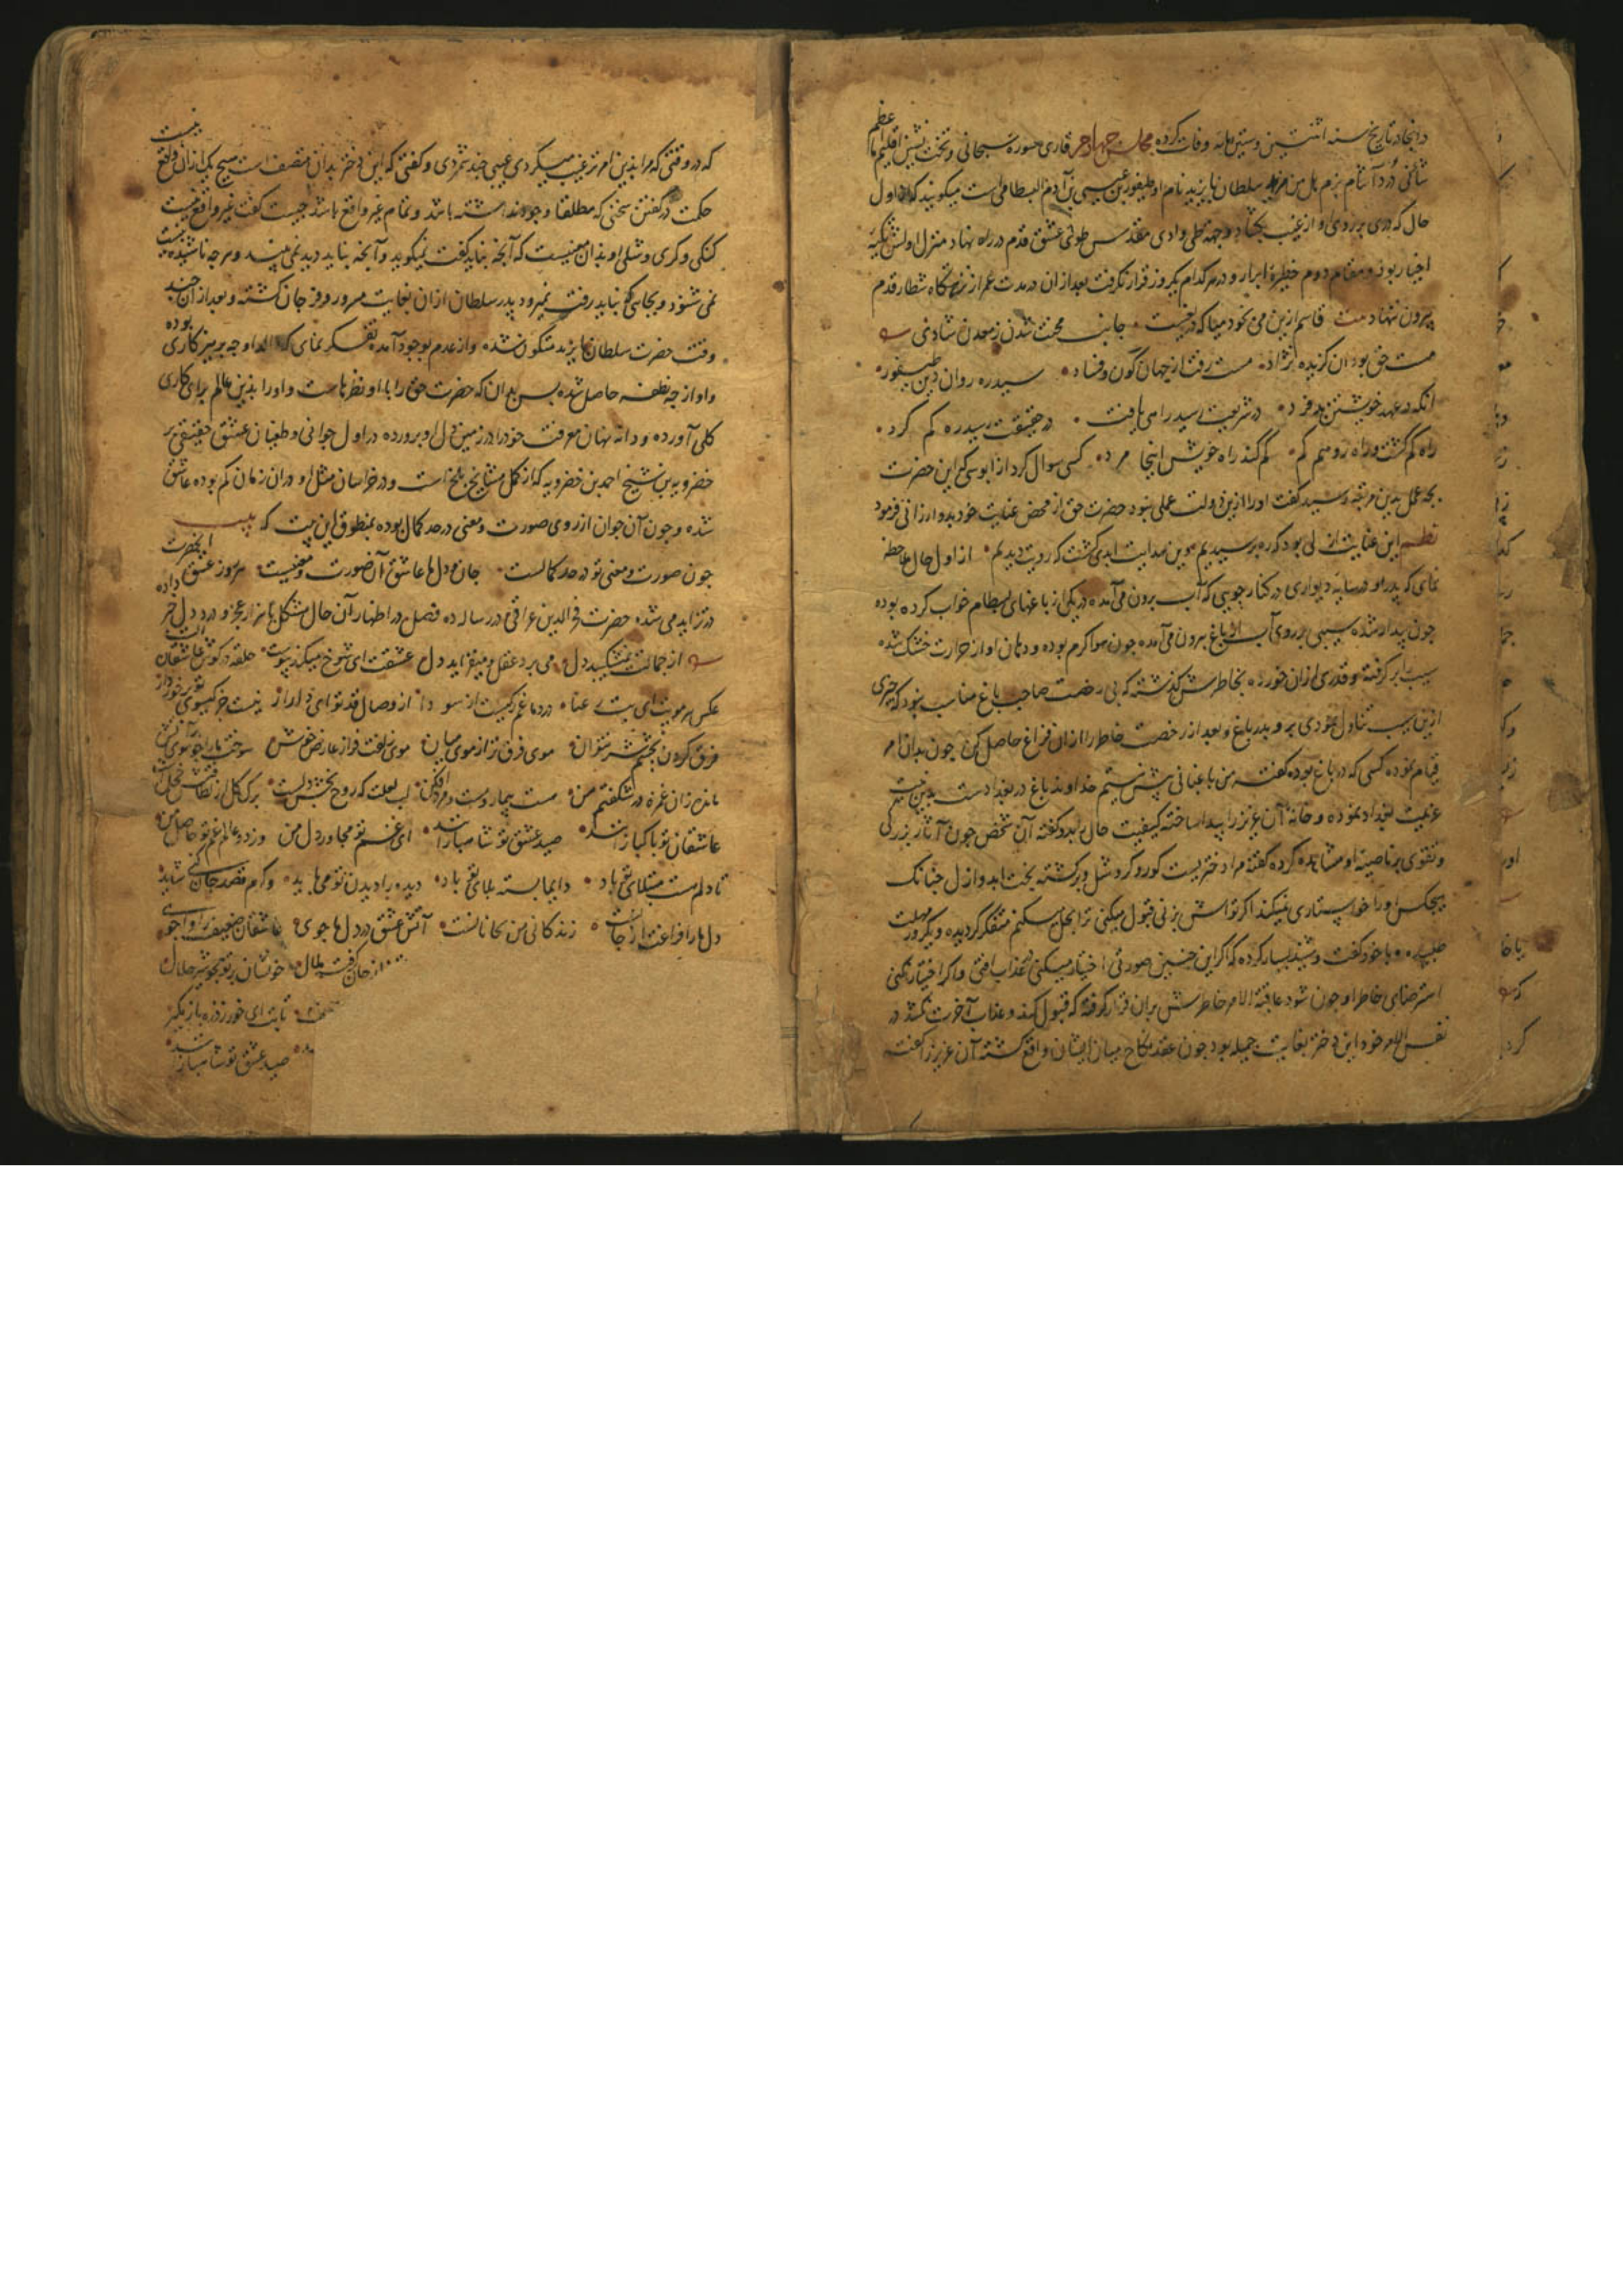 در آنجا در تاریخ سنه اثنتین و ستین مایه وفات کرده مجلس چهارم قاری سوره سبحانی و تخت نشین اقلیم ما اعظم
شانی سلطان بایزید نام او طیفور بن عیسی بن آدم البسطامی است میگویند که در اول
حال که دری بر روی او از غیب بگشاد وجهه طی وادی مقدس طوی عشق قدم در راه نهاد منزل اولش تکیه
اخیار بود و مقام دوم حظیره ابرار و در هر کدام یکروز قرار نگرفت بعد از ان در مدت عمر از شطار قدم
بیرون ننهاد جانب محنت شدن ز معدن شادی
مست حق بود آن گزیده نژاد مست رفت از جهان کون و فساد سید ره روان دین طیفور
آنکه در عهد خویشتن بد فرد در شریعت رسید راهی یافت در حقیقت رسید ره کم کرد
راه کم گشت و راه رو هم کم کم کند راه خویش اینجا مرد کسی سوال کرد از این حضرت
بچه عمل بدین مرتبه رسید گفت او را ازین دولت عملی نبود حضرت حق از محض عنایت خود بدو ارزانی فرمود
نظم این عنایت ازلی بود که ره پرسیدیم وین هدایت ابدی گشت که رویت دیدیم از اول حال ملاحظه
نمای که پدر او در سایه دیواری در کنار جویی که آب برون می آمده در یکی از باغهای بسطام خواب کرده بوده
چون بیدار شده سیبی بر روی آب از باغ برون می آمده چون هوا گرم بوده و دهان او از حرارت خشک شده
سیب بر گرفته و قدری از آن خورده بخاطرش گذشته که بی رخصت صاحب باغ مناسب نبود که چیزی
ازین سیب تناول نمودی برو بدر باغ و بعد از رخصت خاطر را از آن فراغ حاصل کن چون بدان امر
قیام نموده کسی که در باغ بوده گفته من باغبانی بیش نیستم خداوند باغ در بغداد است بدین نیت
عزیمت بغداد نموده و خانه آن عزیز را پیدا ساخته کیفیت حال بدو گفته آن شخص چون آثار بزرگی
و تقوی بر ناصیه او مشاهده کرده گفته مرا دختریست کور و کر و شل و برگشته بخت ابد و ازل چنانک
هیچکس او را خواستاری نمیکند اگر تواش بزنی قبول میکنی ترا بحل میکنم متفکر گردیده و یکروز مهلت
طلبیده و با خود گفت و شنید بسیار کرده که اگر این چنین صورتی اختیار میکنی بعذاب افتی و اگر اختیار نکنی
استرضای خاطر او چون شود عاقبة الامر خاطرش بران قرار گرفته که قبول کند و عذاب آخرت نکشد در
نفس الامر خود این دختر بغایت جمیله بود چون عقد نکاح میان ایشان واقع گشته آن عزیز را گفته
که در وقتی که مرا بدین امر ترغیب میکردی عیبی چند شمردی و گفتی که این دختر بدان متصف است هیچ یک از آن واقع نیست
حکمت در گفتن سخنی که مطلقا وجود نداشته باشد و تمام غیر واقع باشد چیست گفت غیر واقع نیست
گنگی و کری و شلی او بدان معنیست که آنچه نباید گفت نمیگوید و آنچه نباید دید نمی بیند و هرچه نا شنیدنیست
نمی شنود و بجایی که نباید رفت نمیرود پدر سلطان از آن بغایت مسرور و فرحان گشته و بعد از آن چند
وقت حضرت سلطان بایزید متکون شده و از عدم بوجود آمده تفکر نمای که والد او چه پرهیزکاری بوده
و او از چه نطفه حاصل شده پس بدان که حضرت حق را با او نظرهاست و او را بدین عالم برای کاری
کلی آورده و دانه نهان معرفت خود را در زمین دل او پرورده در اول جوانی و طغیان عشق حقیقی بر
خضرویه بن شیخ احمد بن خضرویه که از کمل مشایخ بلخ است و در خراسان مثل او در آن زمان کم بوده عاشق
شده و چون آن جوان از روی صورت و معنی در حد کمال بوده بمنطوق این بیت که بیت
چون صورت و معنی تو در حد کمالست جان و دل ها عاشق آن صورت و معنیست هر روز عشق آنحضرت
در تزاید می شده حضرت فخر الدین عراقی در رساله ده فصل در اظهار آن حال مشکل با هزار عجز و درد دل خبر داده
از جمالت نمیشکیبد دل می برد عقل و میفزاید دل عشقت ای شوخ میکند پیوست حلقه در گوش عاشقان الست
عکس هر مویت ای بت رعنا در دماغم رگیست از سودا از وصال قد تو ای دلدار نیست جز گیسوی تو برخوردار
فرق کردن بچشم سر نتوان موی فرق ترا ز موی میان موی زلفت فراز عارض خوش سوخت ما را چو موی بر آتش
مانده زان غمزه در شگفتم من مست بیمار و مرد افکن لب لعلت که روح بخش دلست برگ گل
عاشقان تو پاکبازانند صید عشق تو شاهبازانند ای غم تو مجاور دل من وز دو عالم غم تو حاصل من
تا دلم هست مبتلای تو باد دایما بسته بلای تو باد دیده را دیدن تو می باید ور کرم قصد جان کنی شاید
دل ما را فراغت از جانست زندگانی من بجانانست آتش عشق در دل ما جوی عاشقان ضعیف را وا جوی
از جان گرفت ملال خونشان ریز همچو شیر حلال
تابت ای خور ز ذره باز مگیر
صید عشق تو شاهبازانند